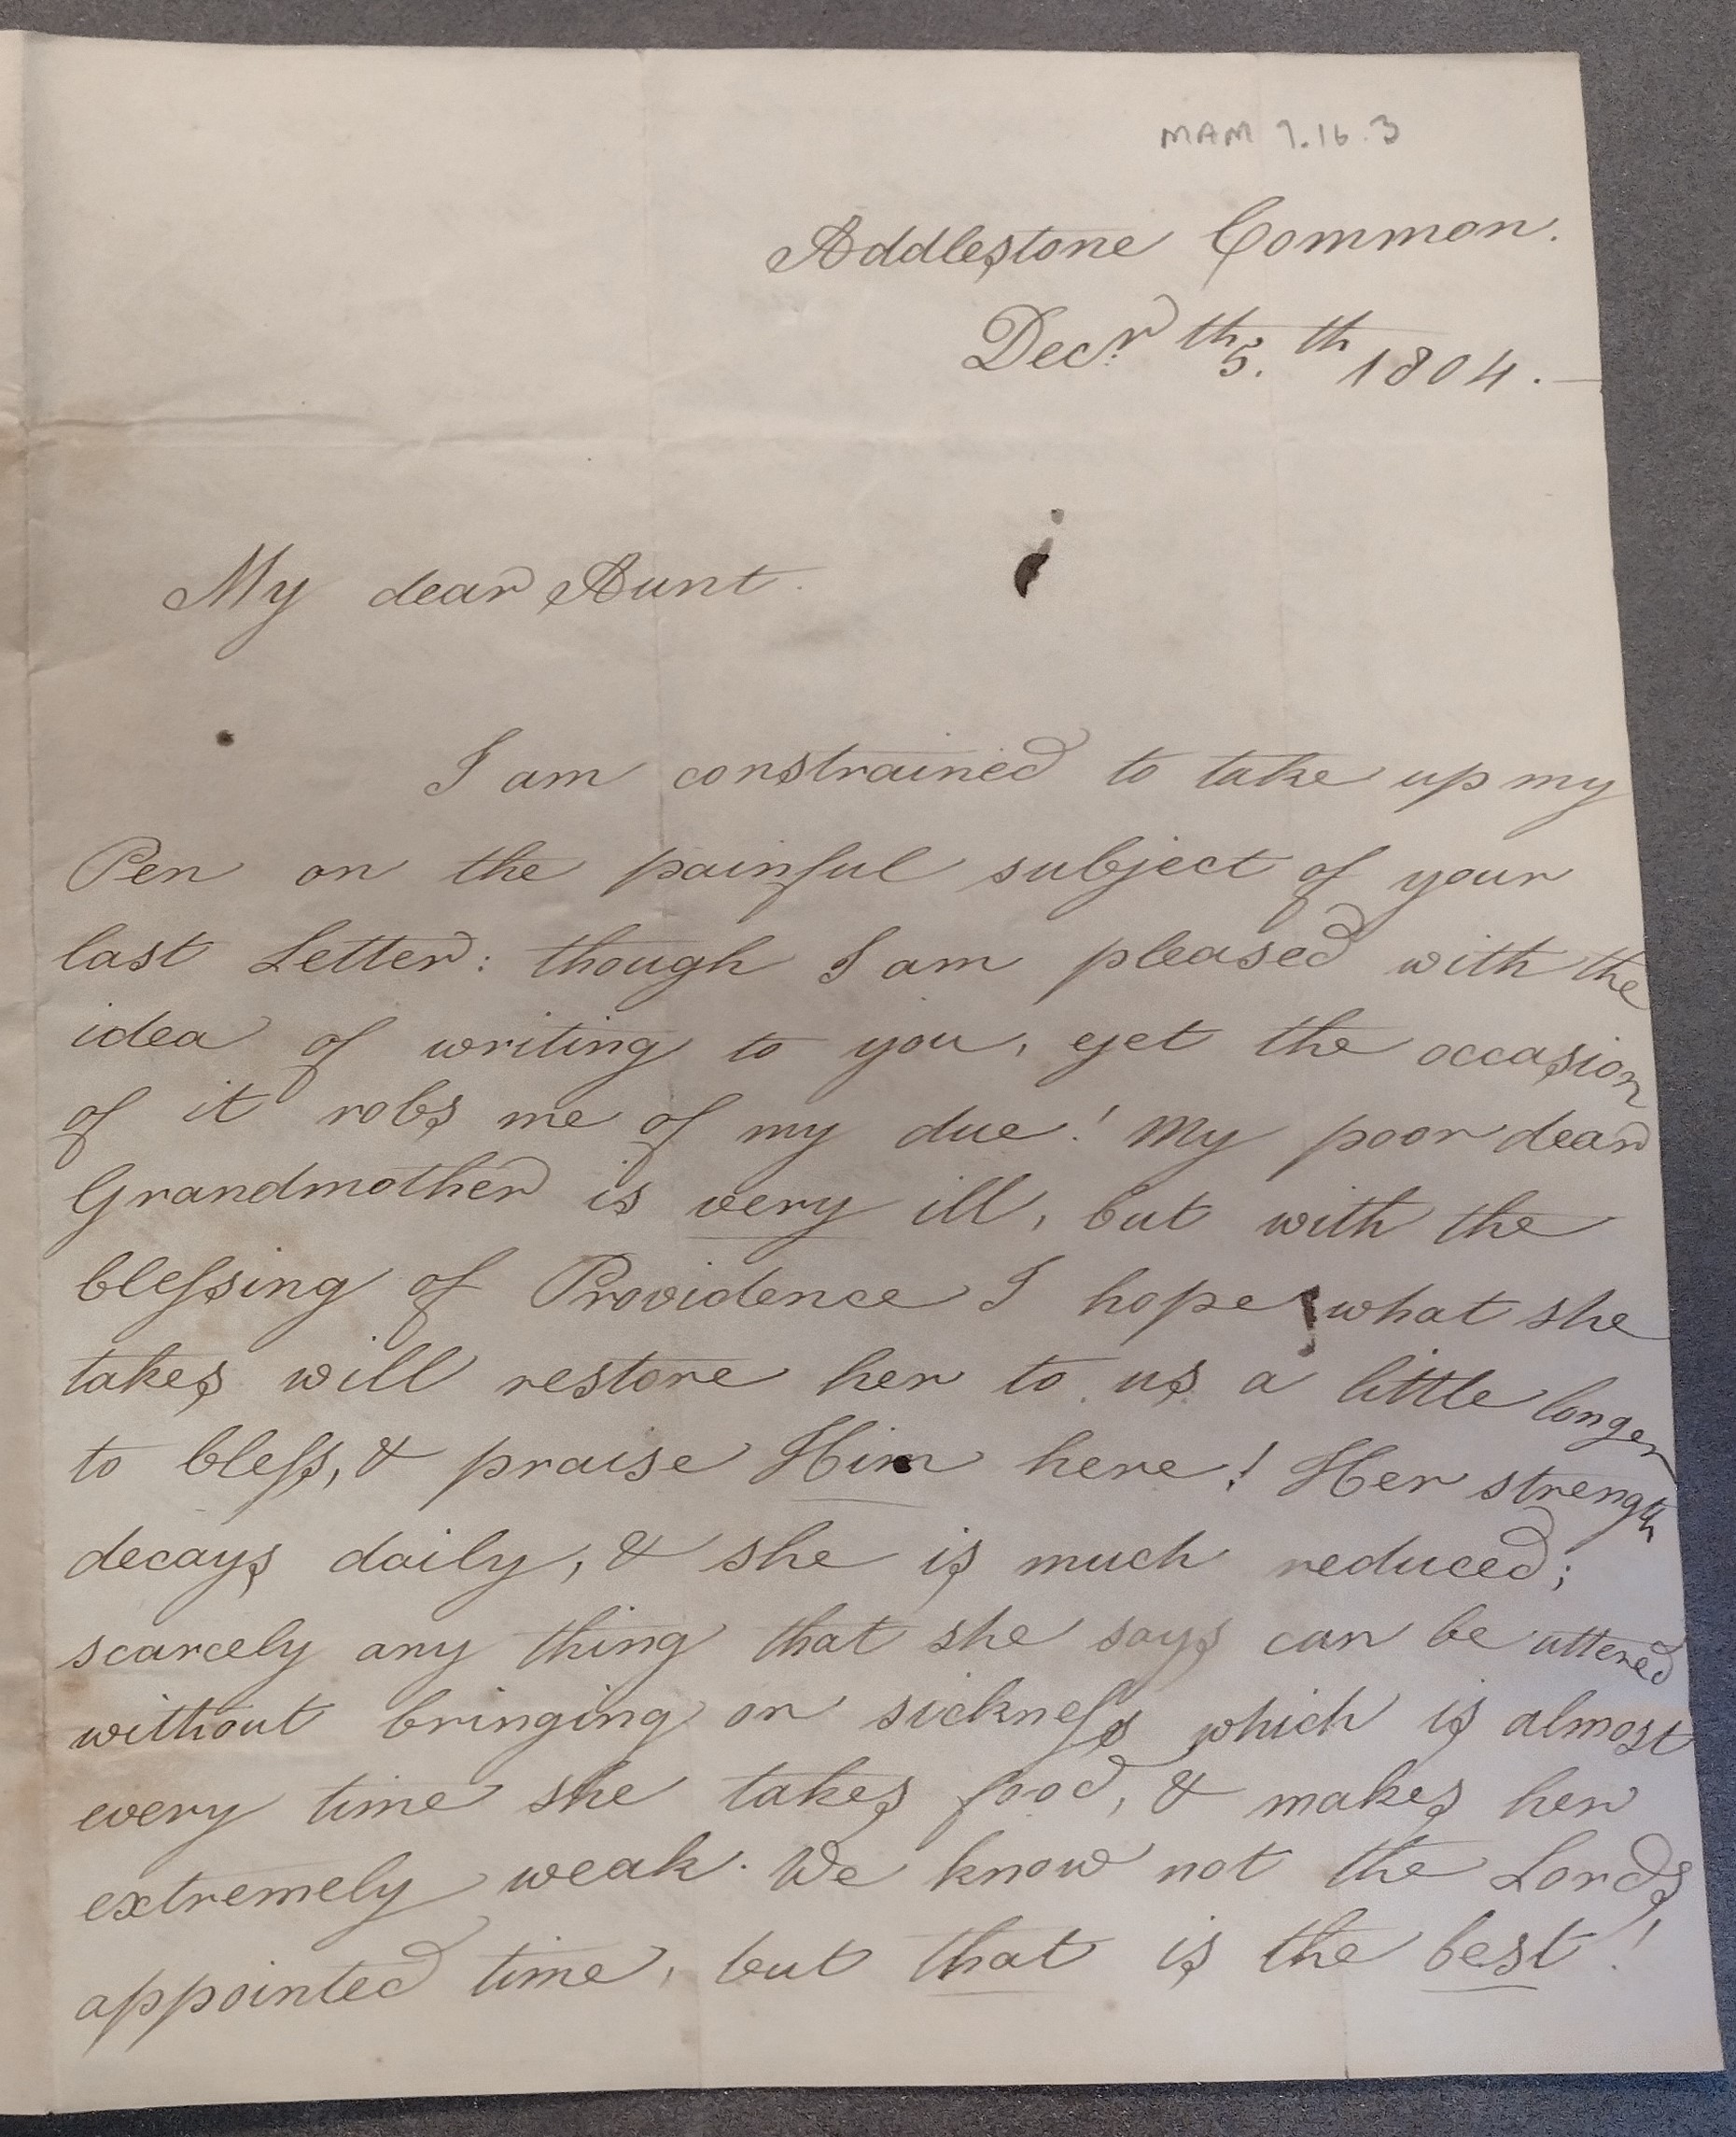 MAM 9.16.3
Addlestone Common.
Decr. th 5. th 1804. —
My dear Aunt.
I am constrained to take up my
Pen on the painful subject of your
last Letter: though I am pleased with the
idea of writing to you, yet the occasion
of it robs me of my due! My poor dear
Grandmother is very ill, but with the
blessing of Providence I hope what she
takes will restore her to us a little longer
to bless, & praise Him here! Her strength
decays daily, & she is much reduced;
scarcely any thing that she says can be uttered
without bringing on sickness which is almost
every time she takes food, & makes her
extremely weak. We know not the Lords
appointed time, but that is the best!